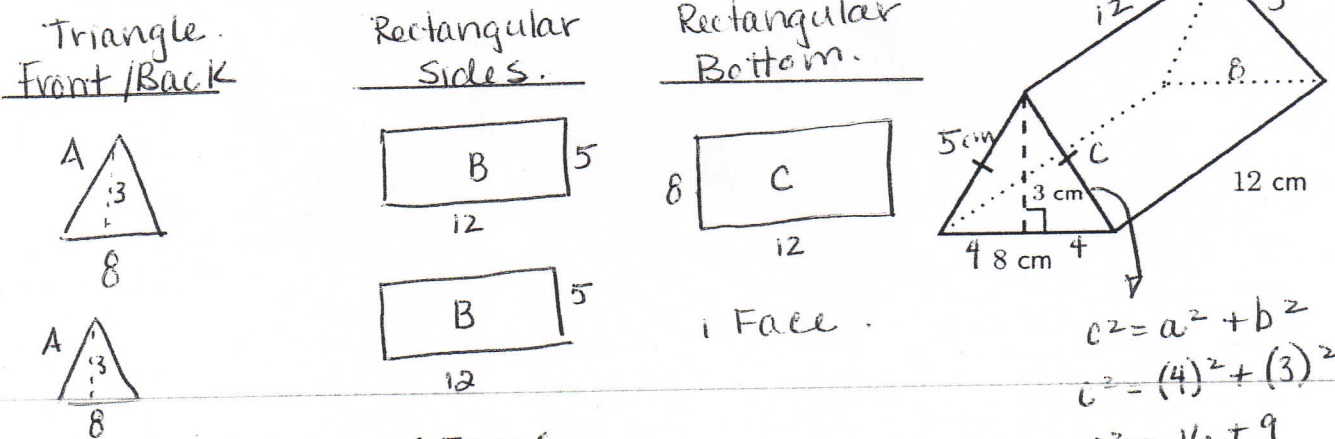 Triangle.
Front/Back
A
3
8
A
3
8
Rectangular
Sides.
B
5
12
B
5
12
Rectangular
Bottom.
8
C
12
1 Face.
12
8
5cm
C
3 cm
12 cm
4 8 cm 4
c² = a² + b²
c² = (4)² + (3)²